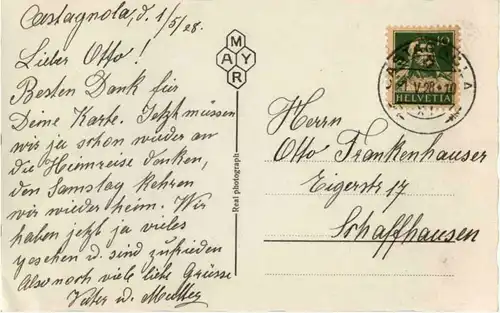 Castagnola, d. 1/5/28.
Lieber Otto!
Besten Dank für
Deine Karte. Jetzt müssen
wir ja schon wieder an
die Heimreise denken,
den Samstag kehren
wir wieder heim. Wir
haben jetzt ja vieles
gesehen u. sind zufrieden
Also noch viele liebe Grüsse
Vater u. Mutter
MAYR
Real photograph
10
HELVETIA
CASTAGNOLA
1.V.28.-10
Herrn
Otto Frankenhauser
Eigerstr 17
Schaffhausen